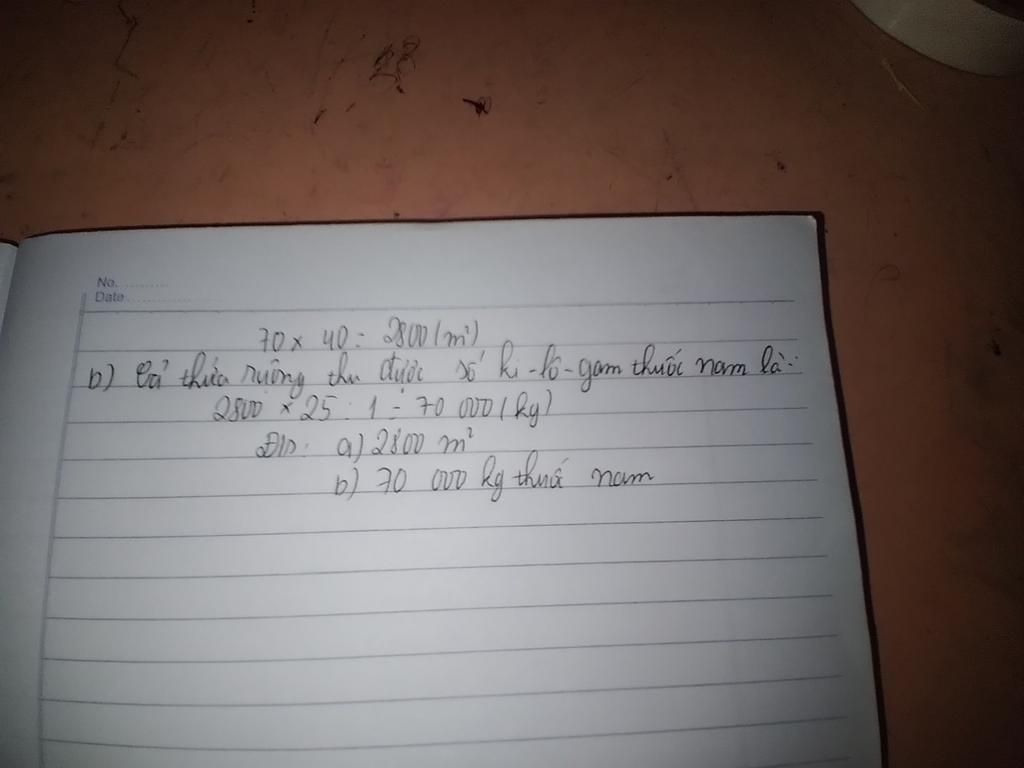 No. ............
Date ........................
70 x 40 = 2800 (m²)
b) Cả thửa ruộng thu được số ki-lô-gam thuốc nam là:
2800 x 25 : 1 = 70 000 (kg)
Đ/S: a) 2800 m²
b) 70 000 kg thuố nam